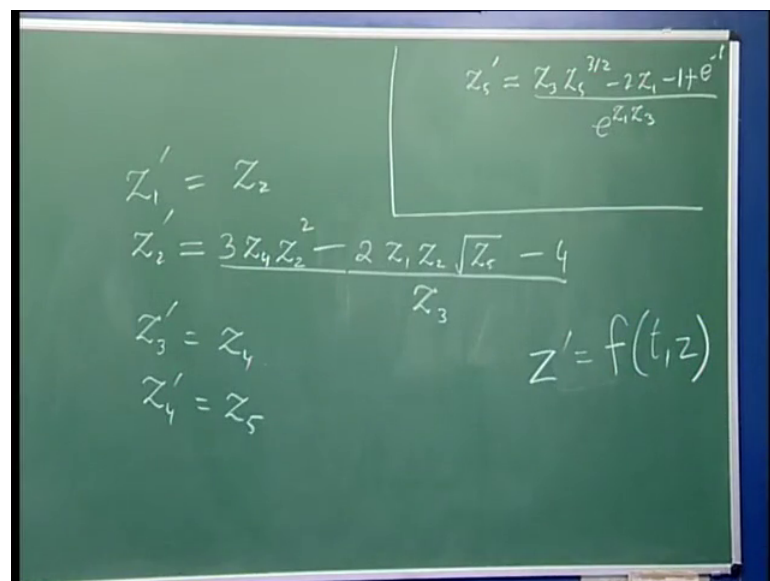 z₅' = (z₃ z₅^{3/2} - 2z₁ - 1 + e^{-t}) / e^{z₁z₃}
z₁' = z₂
z₂' = (3z₄z₂² - 2z₁z₂√z₅ - 4) / z₃
z₃' = z₄
z' = f(t,z)
z₄' = z₅